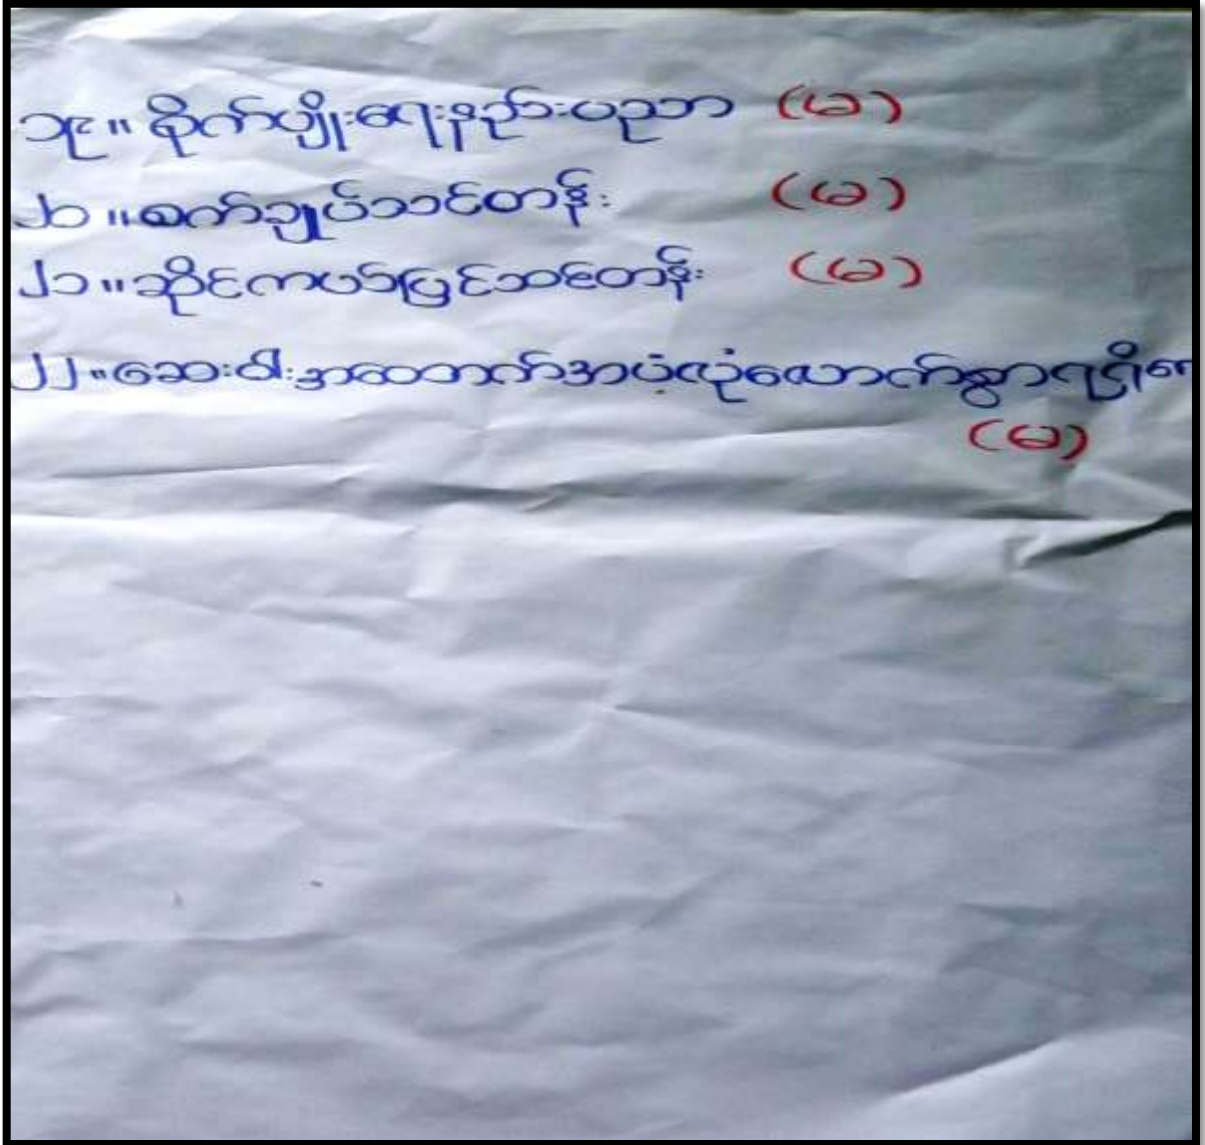 ၁၉။ စိုက်ပျိုးရေးနည်းပညာ (မ)
၂၀။ စက်ချုပ်သင်တန်း (မ)
၂၁။ ဆိုင်ကယ်ပြင်သင်တန်း (မ)
၂၂။ ဆေးဝါးအထောက်အပံ့လုံလောက်စွာရရှိရေး
(မ)